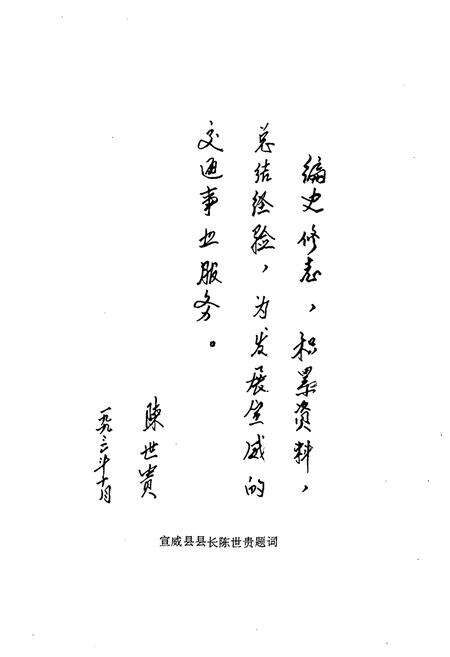 编史修志，积累资料，
总结经验，为发展宣威的
交通事业服务。
陳世贵
一九九二年十月
宣威县县长陈世贵题词